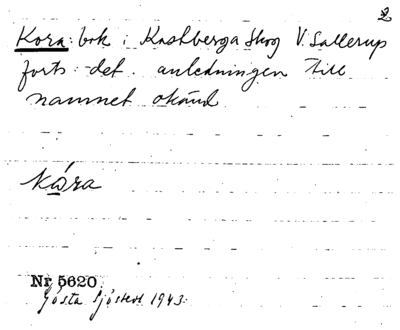 2
Kora: bok i Kastberga Skog V. Sallerup
forts: det. anledningen till
namnet okänd
kόra
Nr 5620.
Gösta Sjöstedt 1943.